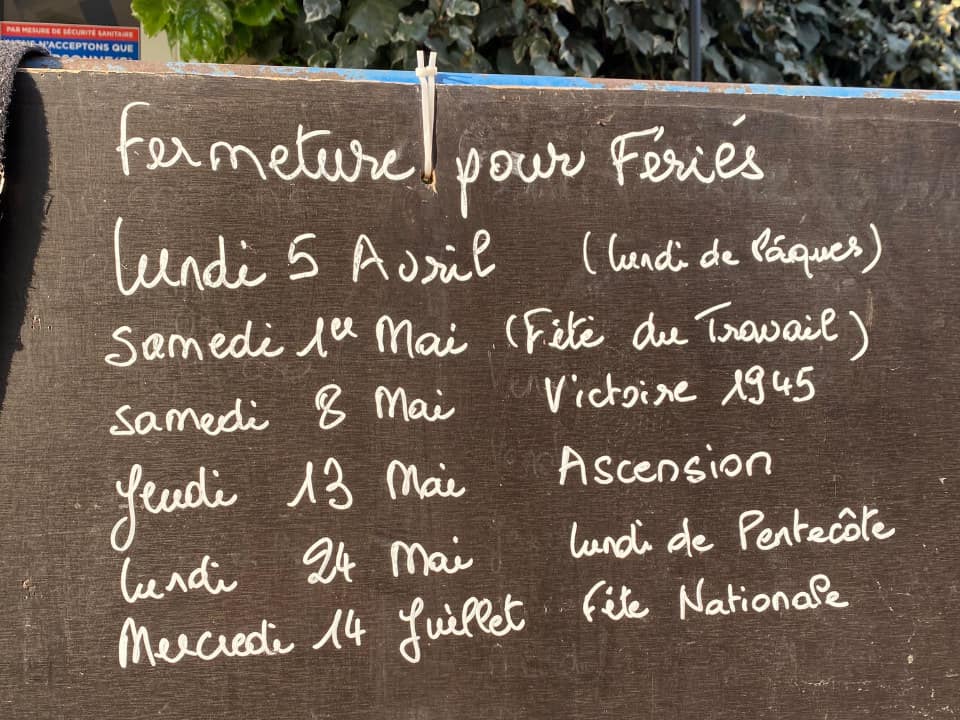 PAR MESURE DE SÉCURITÉ SANITAIRE
N'ACCEPTONS QUE
Fermeture pour Fériés
lundi 5 Avril (lundi de Pâques)
Samedi 1er Mai (Fête du Travail)
samedi 8 Mai Victoire 1945
Jeudi 13 Mai Ascension
lundi 24 Mai lundi de Pentecôte
Mercredi 14 Juillet Fête Nationale